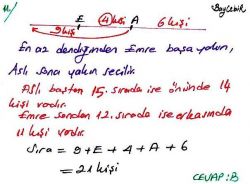 11/
E A Bayçelik
4 kişi 6 kişi
9 kişi
En az dendiğinden Emre başa yakın,
Aslı sona yakın seçilir.
Aslı baştan 15. sırada ise önünde 14
kişi vardır.
Emre sondan 12. sırada ise arkasında
11 kişi vardır.
Sıra = 9+E+4+A+6
= 21 kişi
CEVAP: B